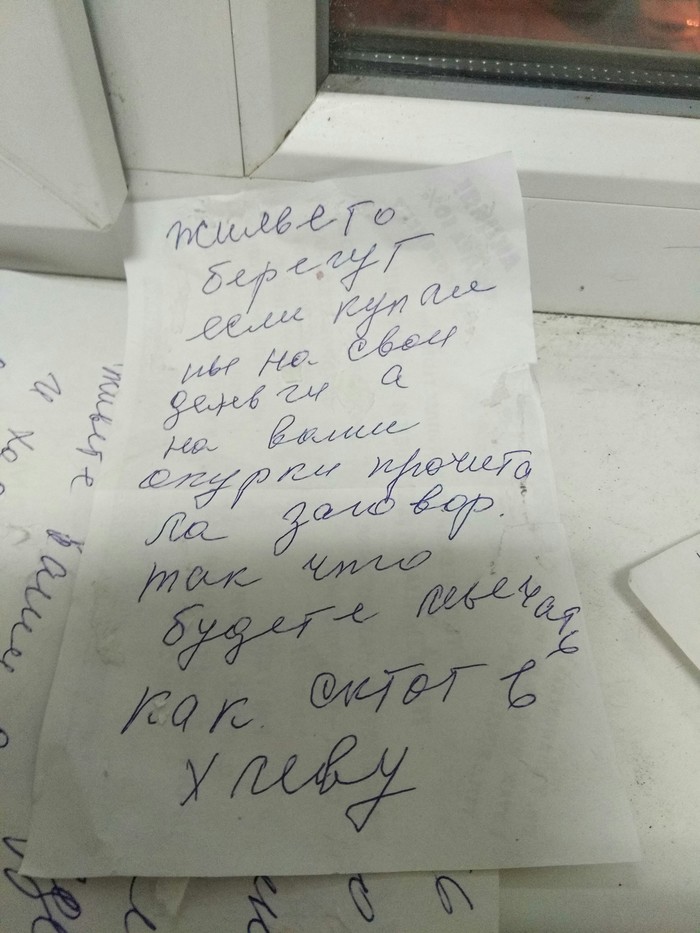 жилье то
берегут
если купле
ны на свои
деньги а
на ваши
окурки прочита
ла заговор.
так что
будете мычать
как сктот в
хлеву